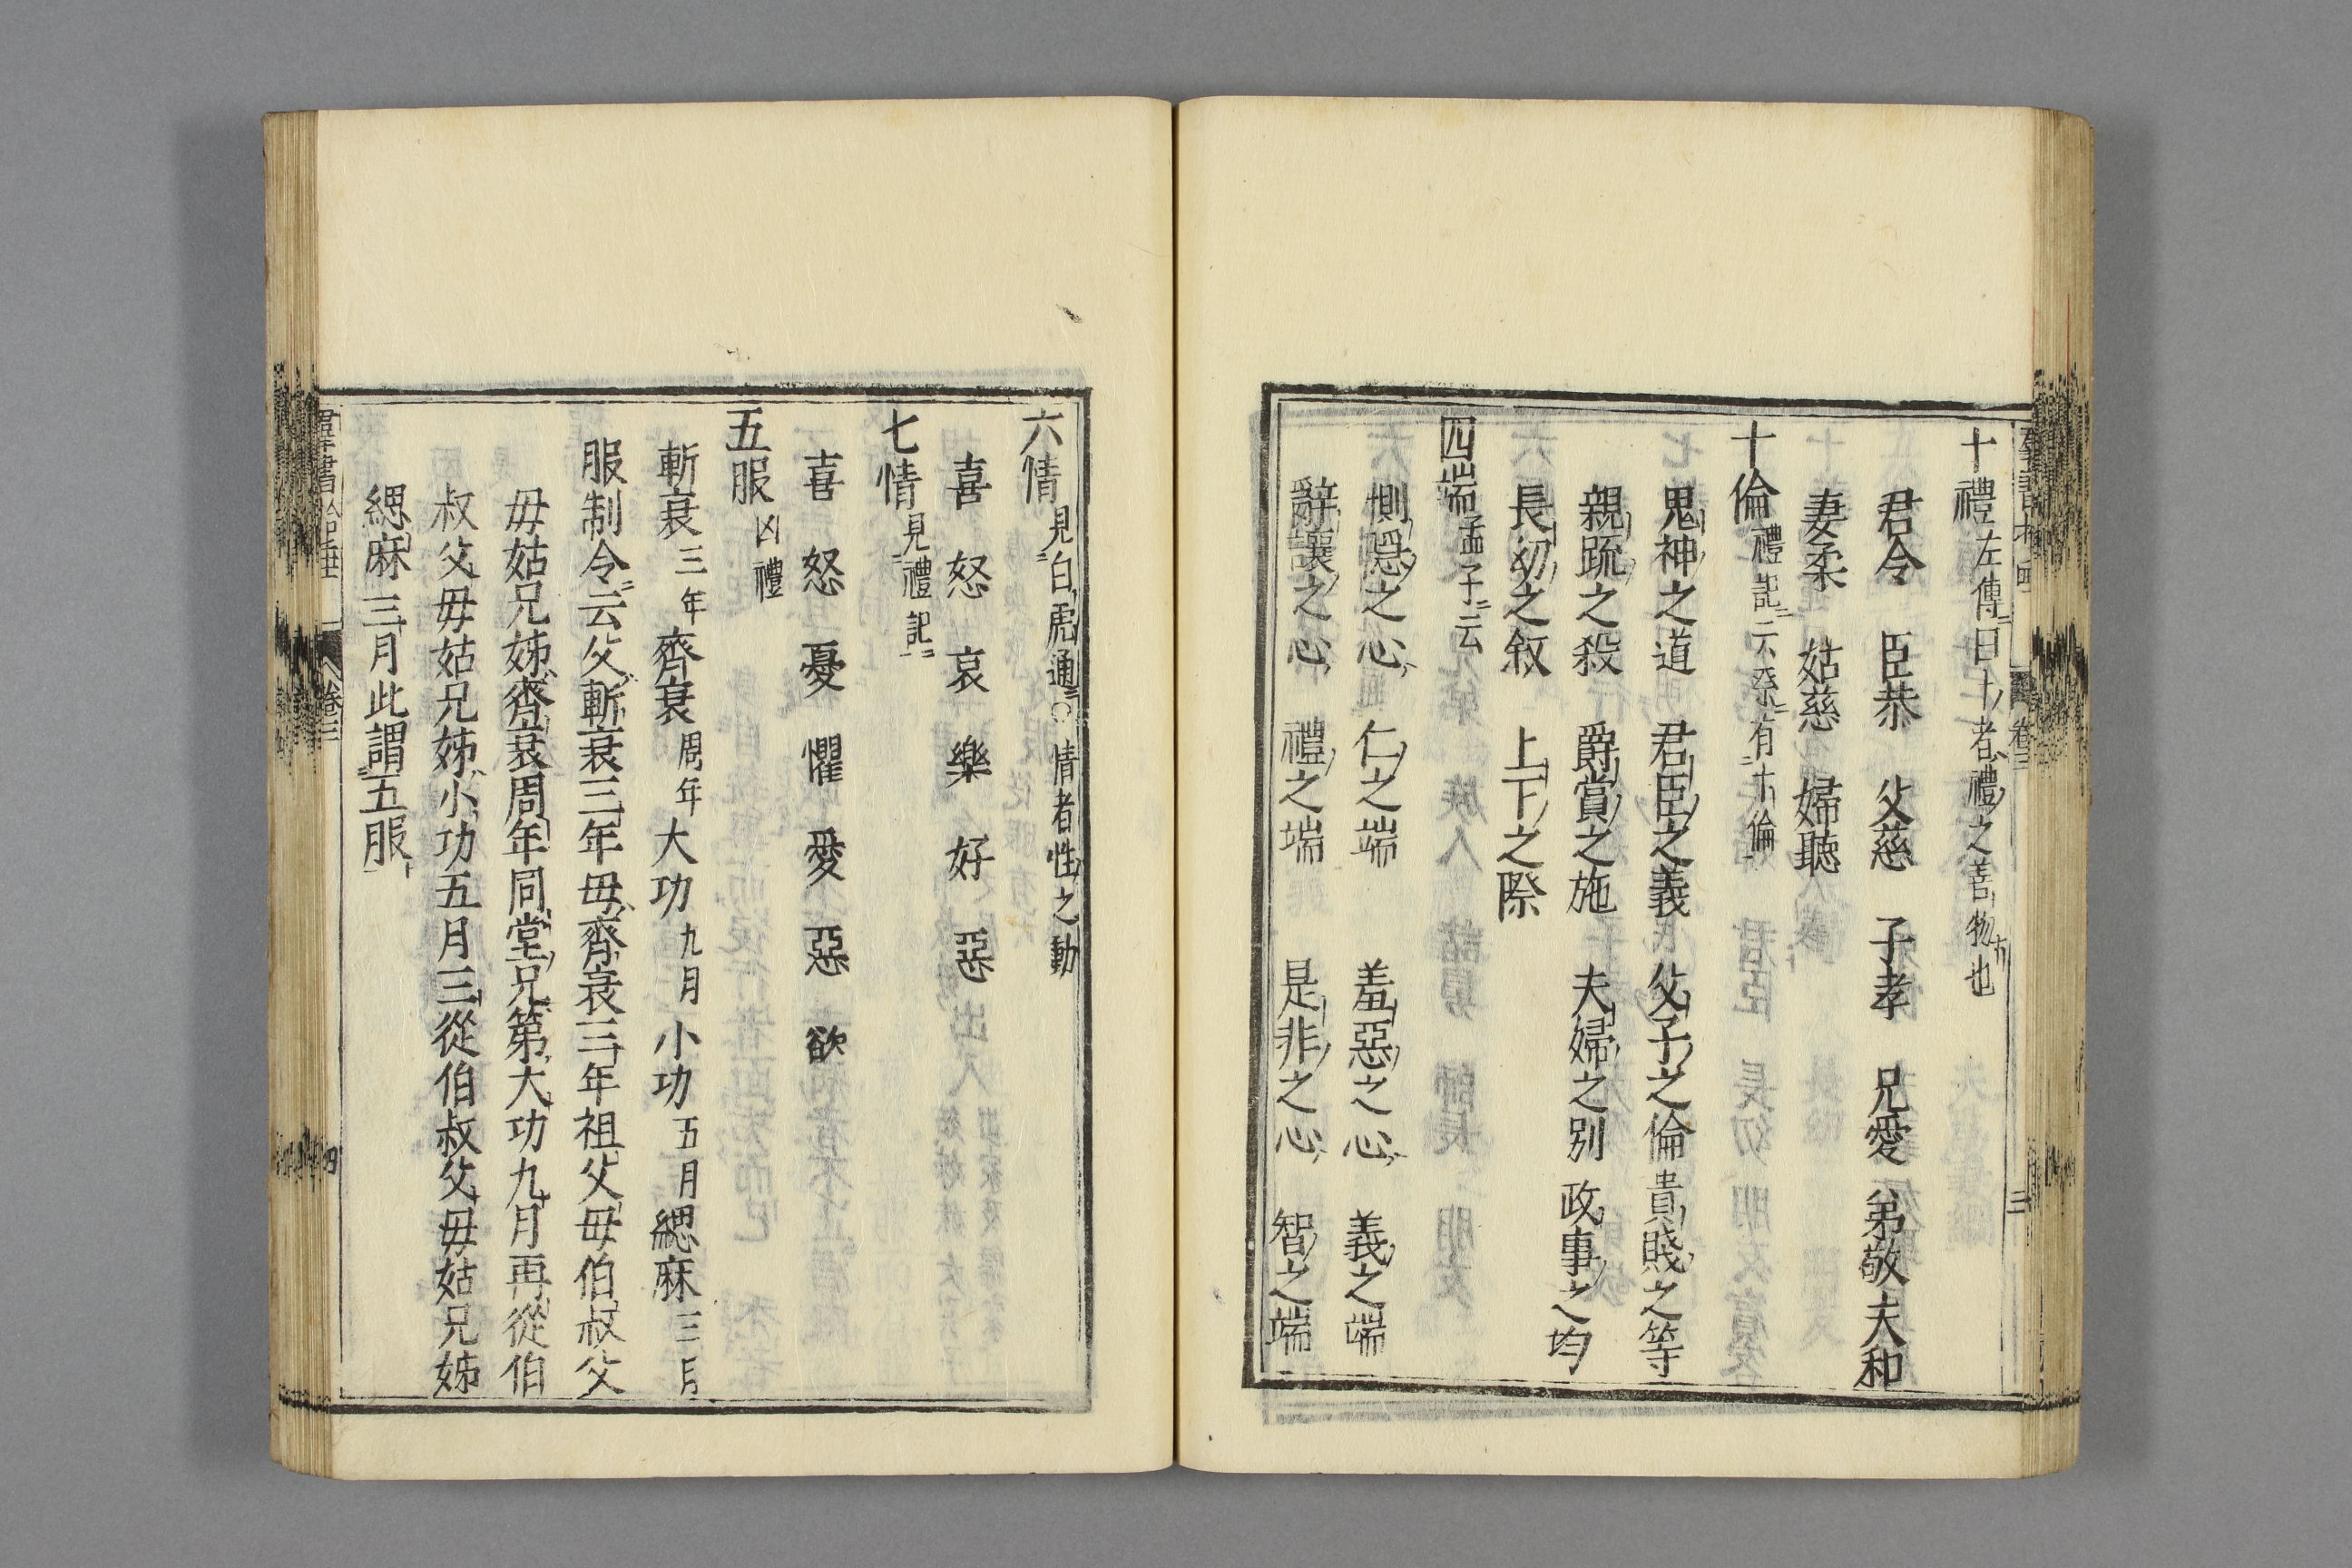 十禮左傳曰十者禮之善物也
君令 臣恭 父慈 子孝 兄愛 弟敬 夫和
妻柔 姑慈 婦聽
十倫禮記云祭有十倫
鬼神之道 君臣之義 父子之倫 貴賤之等
親疏之殺 爵賞之施 夫婦之別 政事之均
長幼之叙 上下之際
四端孟子云
惻隠之心 仁之端 羞惡之心 義之端
辭讓之心 禮之端 是非之心 智之端
卷三
三
六情見白虎通○情者性之動
喜 怒 哀 樂 好 惡
七情見禮記
喜 怒 憂 懼 愛 惡 欲
五服凶禮
斬衰三年齊衰周年大功九月小功五月緦麻三月
服制令云父斬衰三年毋齊衰三年祖父毋伯叔父
毋姑兄姊齊衰周年同堂兄第大功九月再從伯
叔父毋姑兄姊小功五月三從伯叔父毋姑兄姊
緦麻三月此謂五服
卷三
四